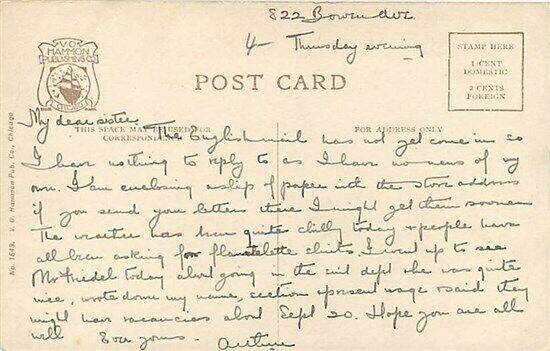 822 Bowen Ave
4 Thursday evening
V.O.
HAMMON
PUBLISHING CO.
CHICAGO
POST CARD
STAMP HERE
1 CENT
DOMESTIC
2 CENTS
FOREIGN
My dear sister
THIS SPACE MAY BE USED FOR
CORRESPONDENCE
FOR ADDRESS ONLY
The English mail has not yet come in so
I have nothing to reply to as I have no news of my
own. I am enclosing a slip of paper with the store address
if you send your letters there I might get them sooner
The weather has been quite chilly today & people have
all been asking for flannelette shirts. I went up to see
Mr Friedel today about going in the mail dept he was quite
nice, wrote down my name, section & present wage & said they
might have vacancies about Sept 20. Hope you are all
well Ever yours.
No. 1649. V. O. Hammon Pub. Co., Chicago